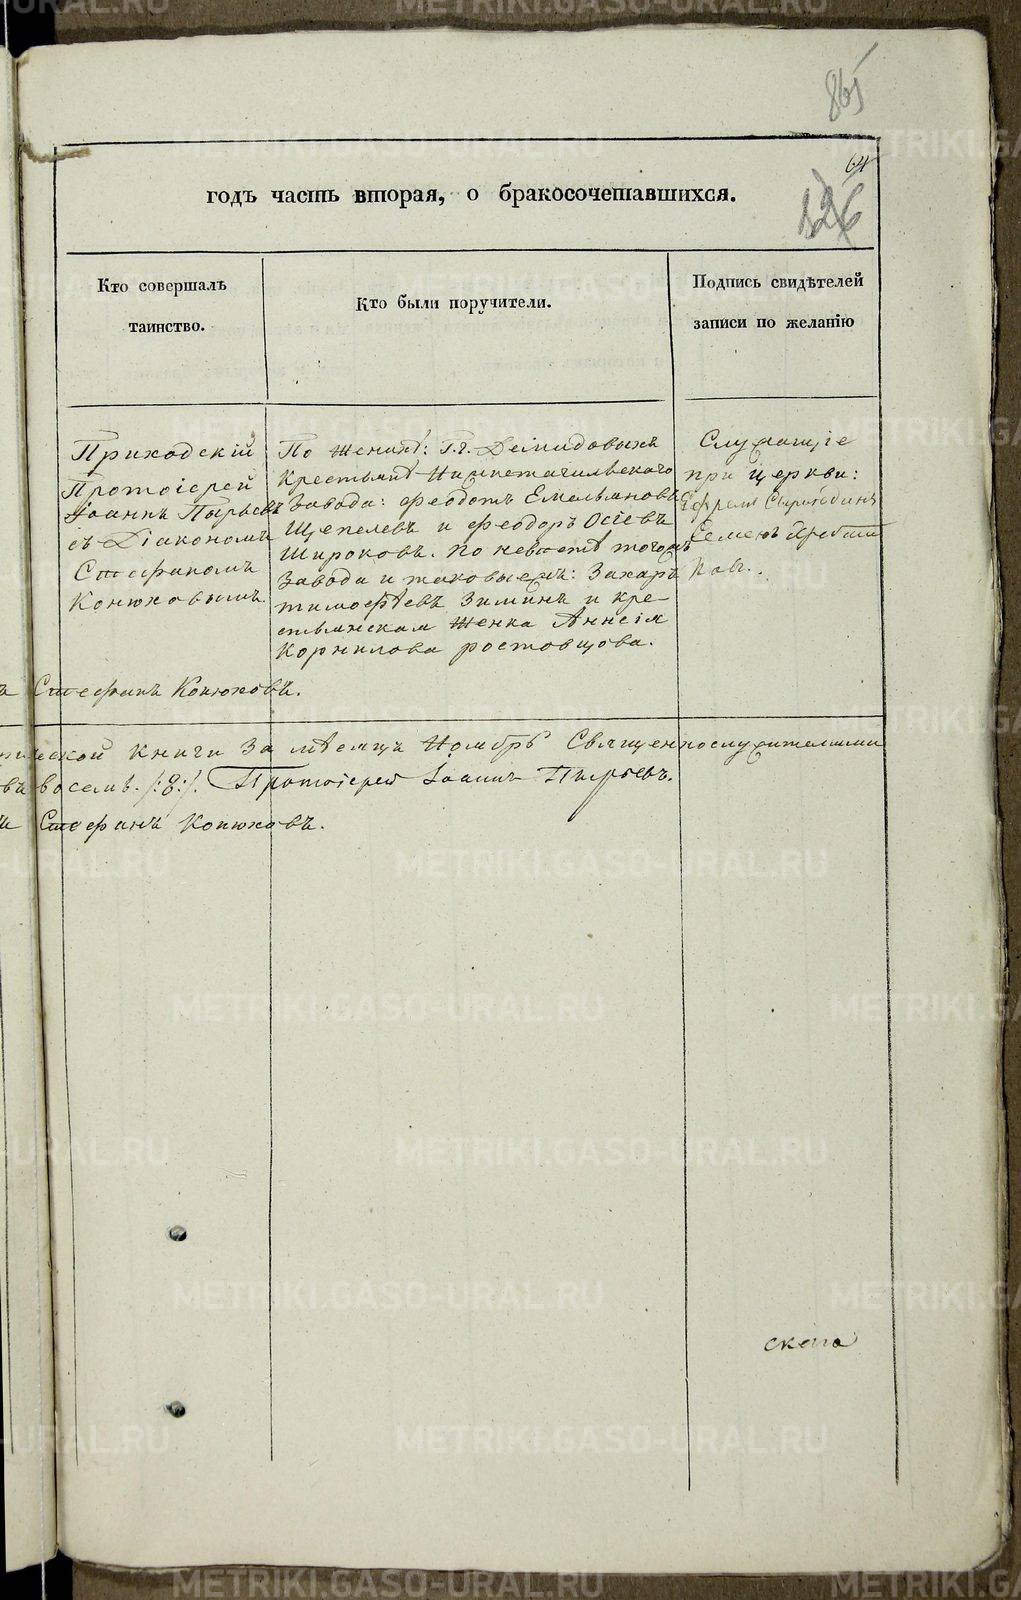 865
64
126
годъ часть вторая, о бракосочетавшихся.
Кто совершалъ
таинство.
Кто были поручители.
Подпись свидѣтелей
записи по желанію
Приходскій
Протоіерей
Іоаннъ Пырьевъ
съ Діакономъ
Стефаномъ
Конюховымъ
По женихѣ: Гг. Демидовыхъ
крестьянѣ Нижнетагильскаго
Завода: Феодотъ Емельяновъ
Щепелевъ и Феодоръ Осіевъ
Широковъ. По невѣстѣ тогожъ
Завода и таковыежъ: Захаръ
тимофѣевъ Зиминъ и кре-
стьянская Женка Аннсія
Корнилова ростовщова.
Служащіе
при Церкви:
Ефремъ
Семенъ
ковъ.
Стефанъ Конюховъ.
ческой книги За мѣсяцъ Ноябрь Священнослужителями
восемь. /:8:/. Протоіерей Іоаннъ Пырьевъ.
Стефанъ Конюховъ.
скаго
METRIKI.GASO-URAL.RU